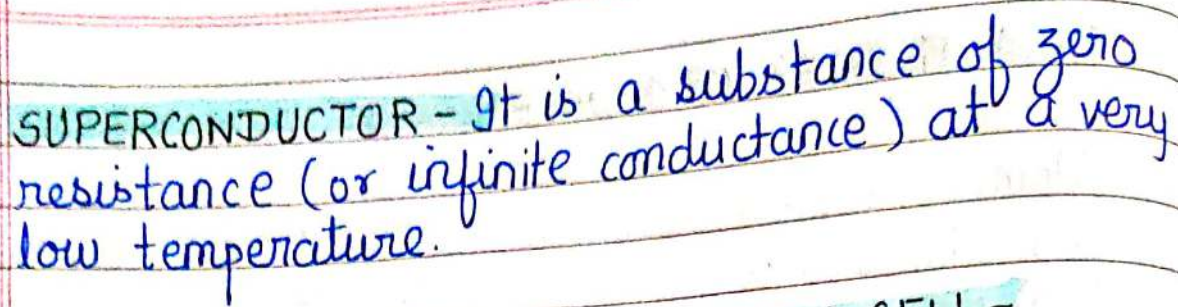 SUPERCONDUCTOR - It is a substance of zero
resistance (or infinite conductance) at a very
low temperature.